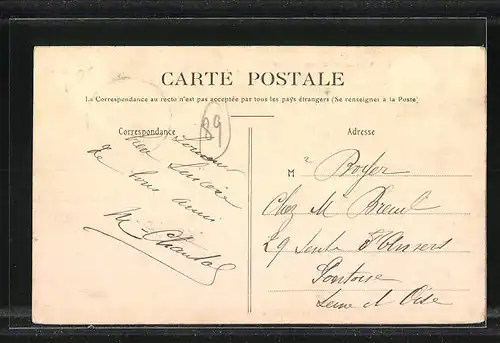 CARTE POSTALE
La Correspondance au recto n'est pas acceptée par tous les pays étrangers (Se renseigner à la Poste)
89
Correspondance
Adresse
Souvenir
bien Sincère
de vous amis
M. Chantal
M r Boyer
Chez M Breuil
29 Sente d'Anvers
Pontoise
Seine et Oise